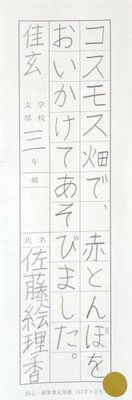 コスモス畑で、赤とんぼを
おいかけてあそびました。
佳玄
学校
支部
三年
級
氏名
佐藤絵理香